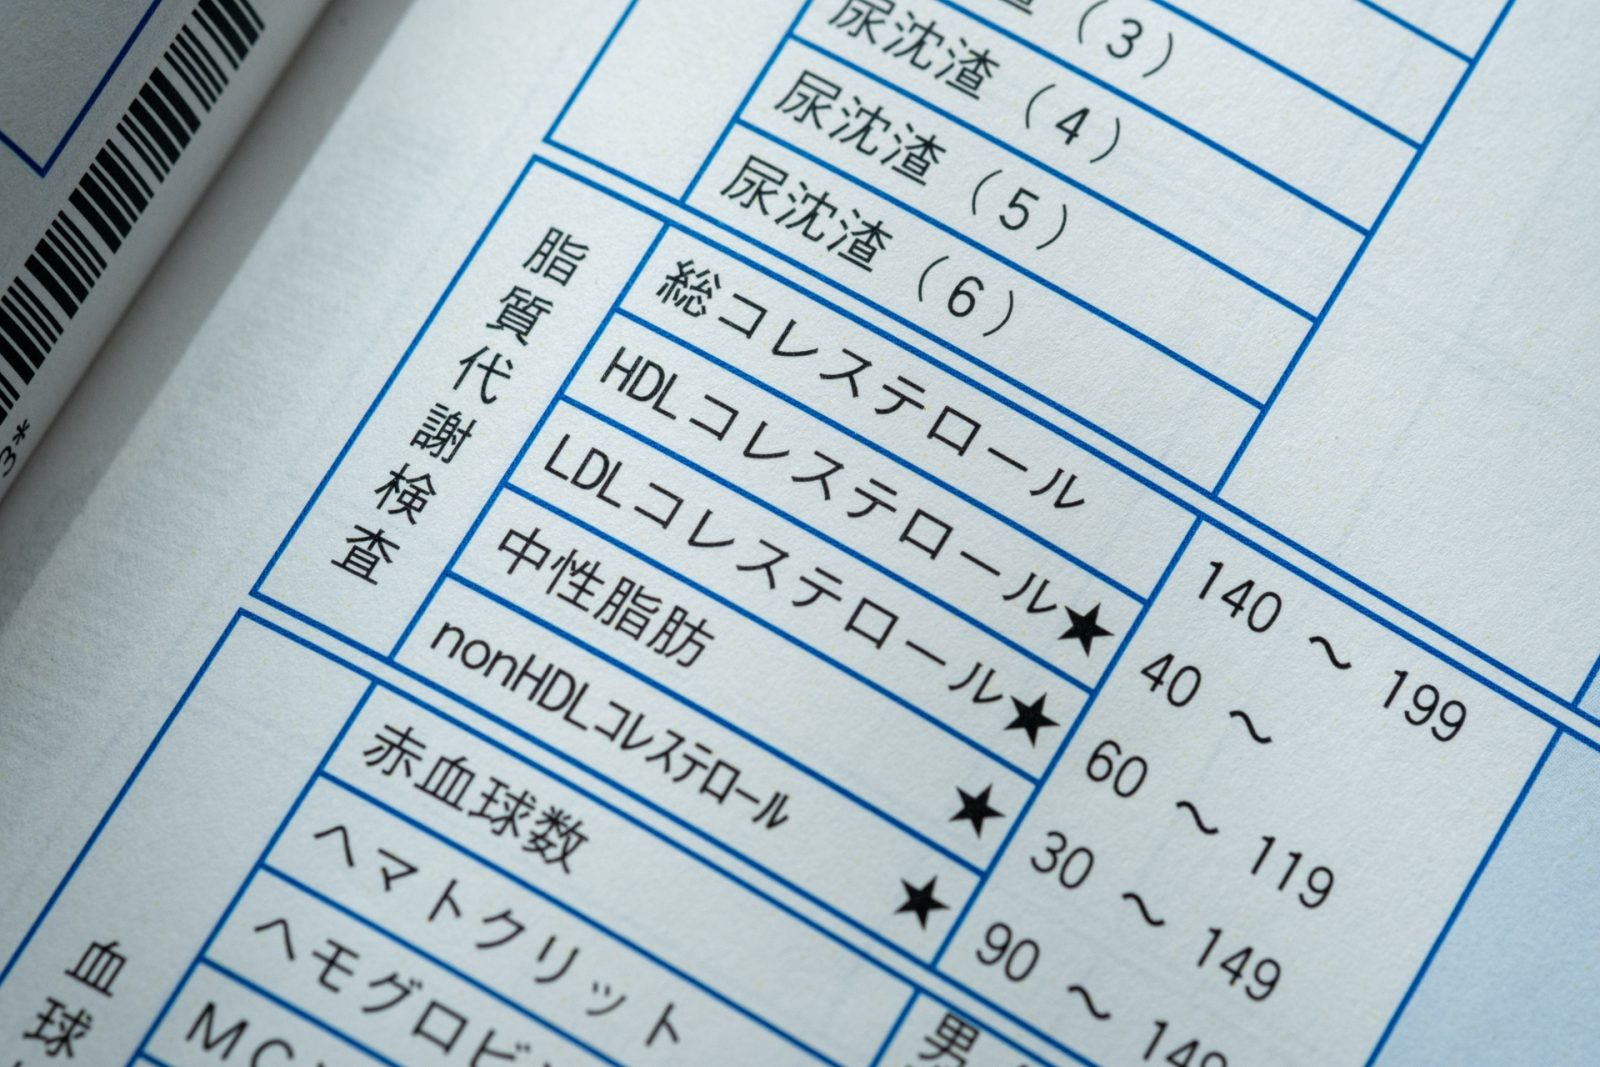 (3)
尿沈渣(4)
尿沈渣(5)
尿沈渣(6)
脂質代謝検査
総コレステロール 140 ～ 199
HDLコレステロール★ 40 ～
LDLコレステロール★ 60 ～ 119
中性脂肪 ★ 30 ～ 149
nonHDLコレステロール ★ 90 ～ 149
血球
赤血球数 男
ヘマトクリット
ヘモグロビ
MC
3*